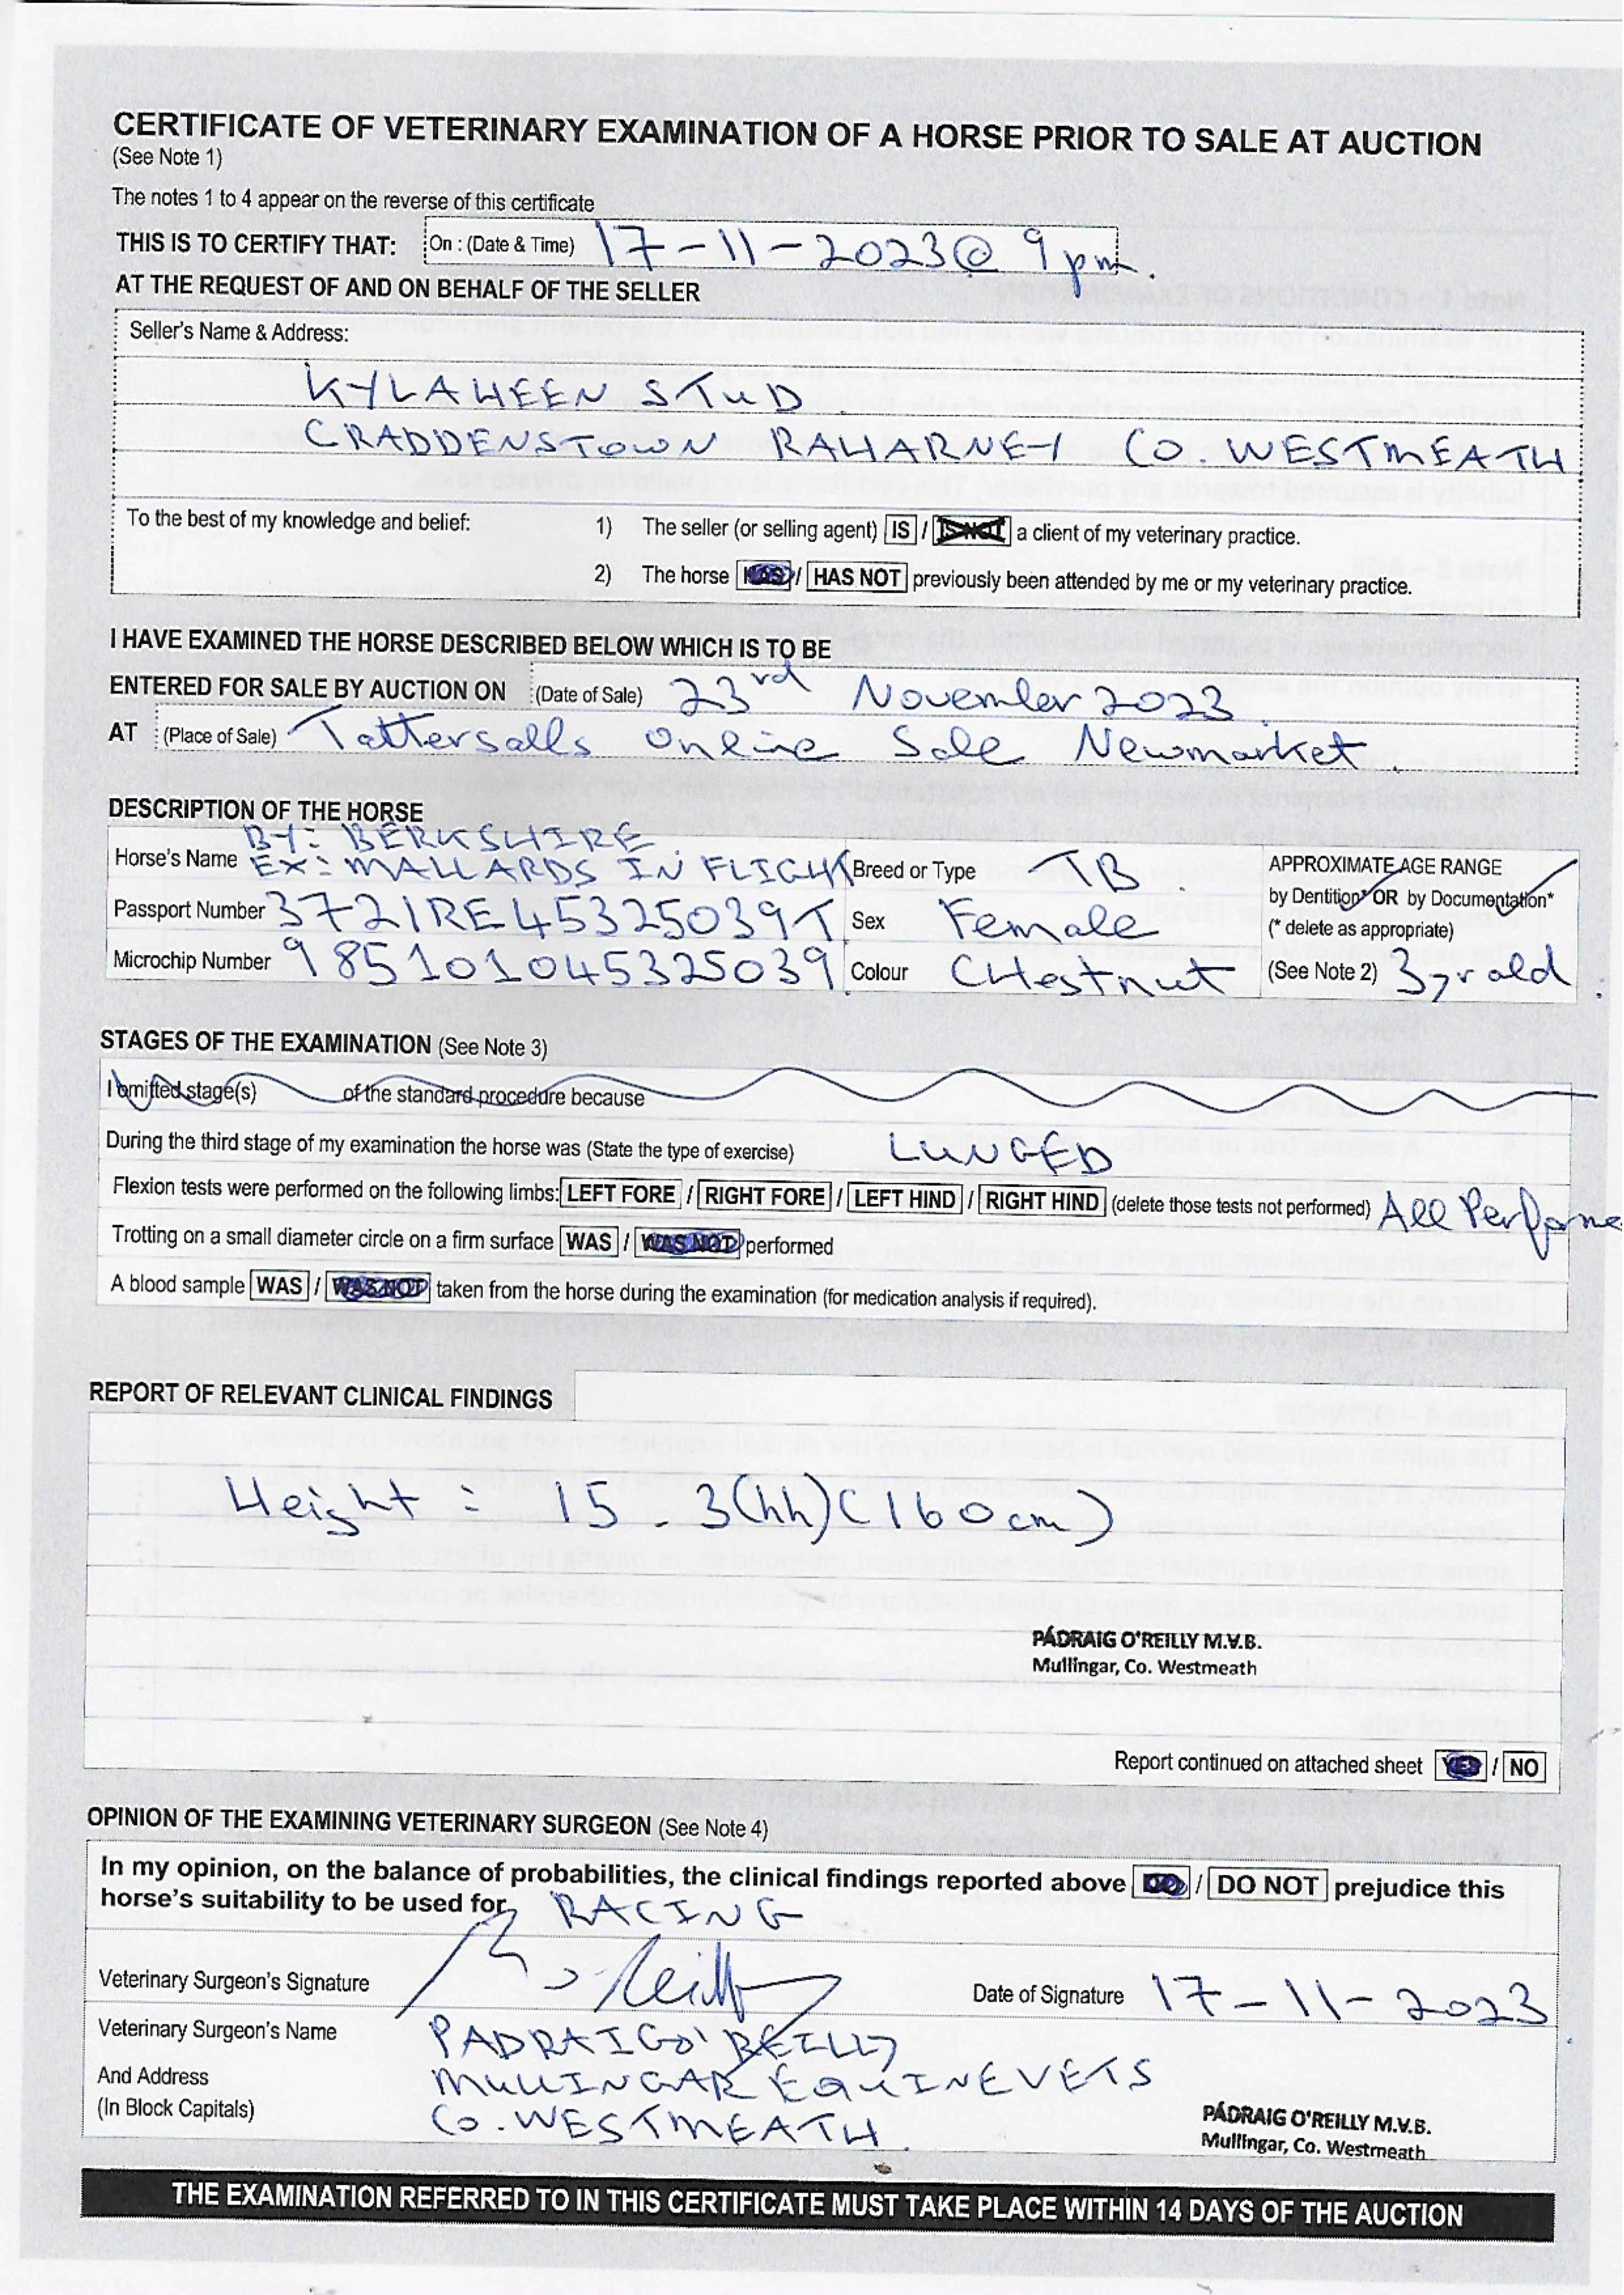 CERTIFICATE OF VETERINARY EXAMINATION OF A HORSE PRIOR TO SALE AT AUCTION
(See Note 1)
The notes 1 to 4 appear on the reverse of this certificate
THIS IS TO CERTIFY THAT: On : (Date & Time) 17-11-2023 @ 9pm.
AT THE REQUEST OF AND ON BEHALF OF THE SELLER
Seller's Name & Address:
KYLAHEEN STUD
CRADDENSTOWN RAHARNEY CO. WESTMEATH
To the best of my knowledge and belief: 1) The seller (or selling agent) IS / IS NOT a client of my veterinary practice.
2) The horse HAS / HAS NOT previously been attended by me or my veterinary practice.
I HAVE EXAMINED THE HORSE DESCRIBED BELOW WHICH IS TO BE
ENTERED FOR SALE BY AUCTION ON (Date of Sale) 23rd November 2023.
AT (Place of Sale) Tattersalls Online Sale Newmarket.
DESCRIPTION OF THE HORSE
BY: BERKSHIRE
Horse's Name EX: MALLARDS IN FLIGHT Breed or Type TB. APPROXIMATE AGE RANGE
by Dentition* OR by Documentation*
Passport Number 372IRE45325039T Sex Female (* delete as appropriate)
Microchip Number 985101045325039 Colour CHestnut (See Note 2) 3yr old.
STAGES OF THE EXAMINATION (See Note 3)
I omitted stage(s) of the standard procedure because
During the third stage of my examination the horse was (State the type of exercise) LUNGED
Flexion tests were performed on the following limbs: LEFT FORE / RIGHT FORE / LEFT HIND / RIGHT HIND (delete those tests not performed) All Perfome
Trotting on a small diameter circle on a firm surface WAS / WAS NOT performed
A blood sample WAS / WAS NOT taken from the horse during the examination (for medication analysis if required).
REPORT OF RELEVANT CLINICAL FINDINGS
Height : 15.3(hh)(160cm)
PÁDRAIG O'REILLY M.V.B.
Mullingar, Co. Westmeath
Report continued on attached sheet YES / NO
OPINION OF THE EXAMINING VETERINARY SURGEON (See Note 4)
In my opinion, on the balance of probabilities, the clinical findings reported above DO / DO NOT prejudice this
horse's suitability to be used for RACING
Veterinary Surgeon's Signature P O'Reilly Date of Signature 17-11-2023.
Veterinary Surgeon's Name PADRAIG O'REILLY
And Address MULLINGAR EQUINE VETS
(In Block Capitals) CO. WESTMEATH.
PÁDRAIG O'REILLY M.V.B.
Mullingar, Co. Westmeath
THE EXAMINATION REFERRED TO IN THIS CERTIFICATE MUST TAKE PLACE WITHIN 14 DAYS OF THE AUCTION